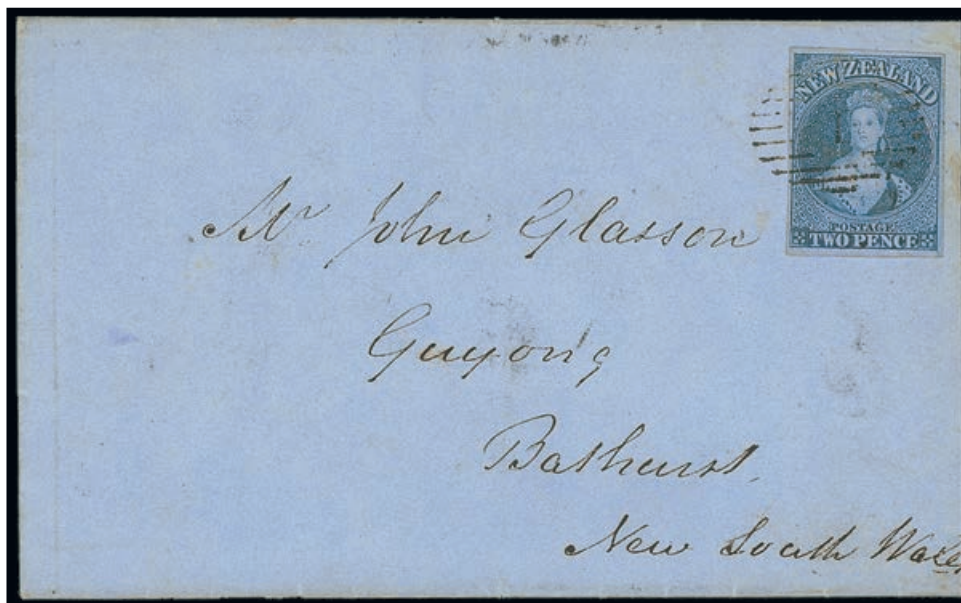 NEW ZEALAND
POSTAGE
TWO PENCE
Mr John Glasson
Guyong
Bathurst,
New South Wales